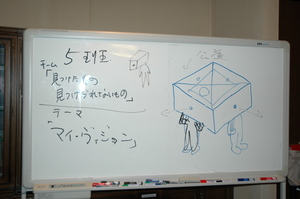 5班
チーム
「見つけたもの
見つけられてないもの」
テーマ
「マイ・ヴィジョン」